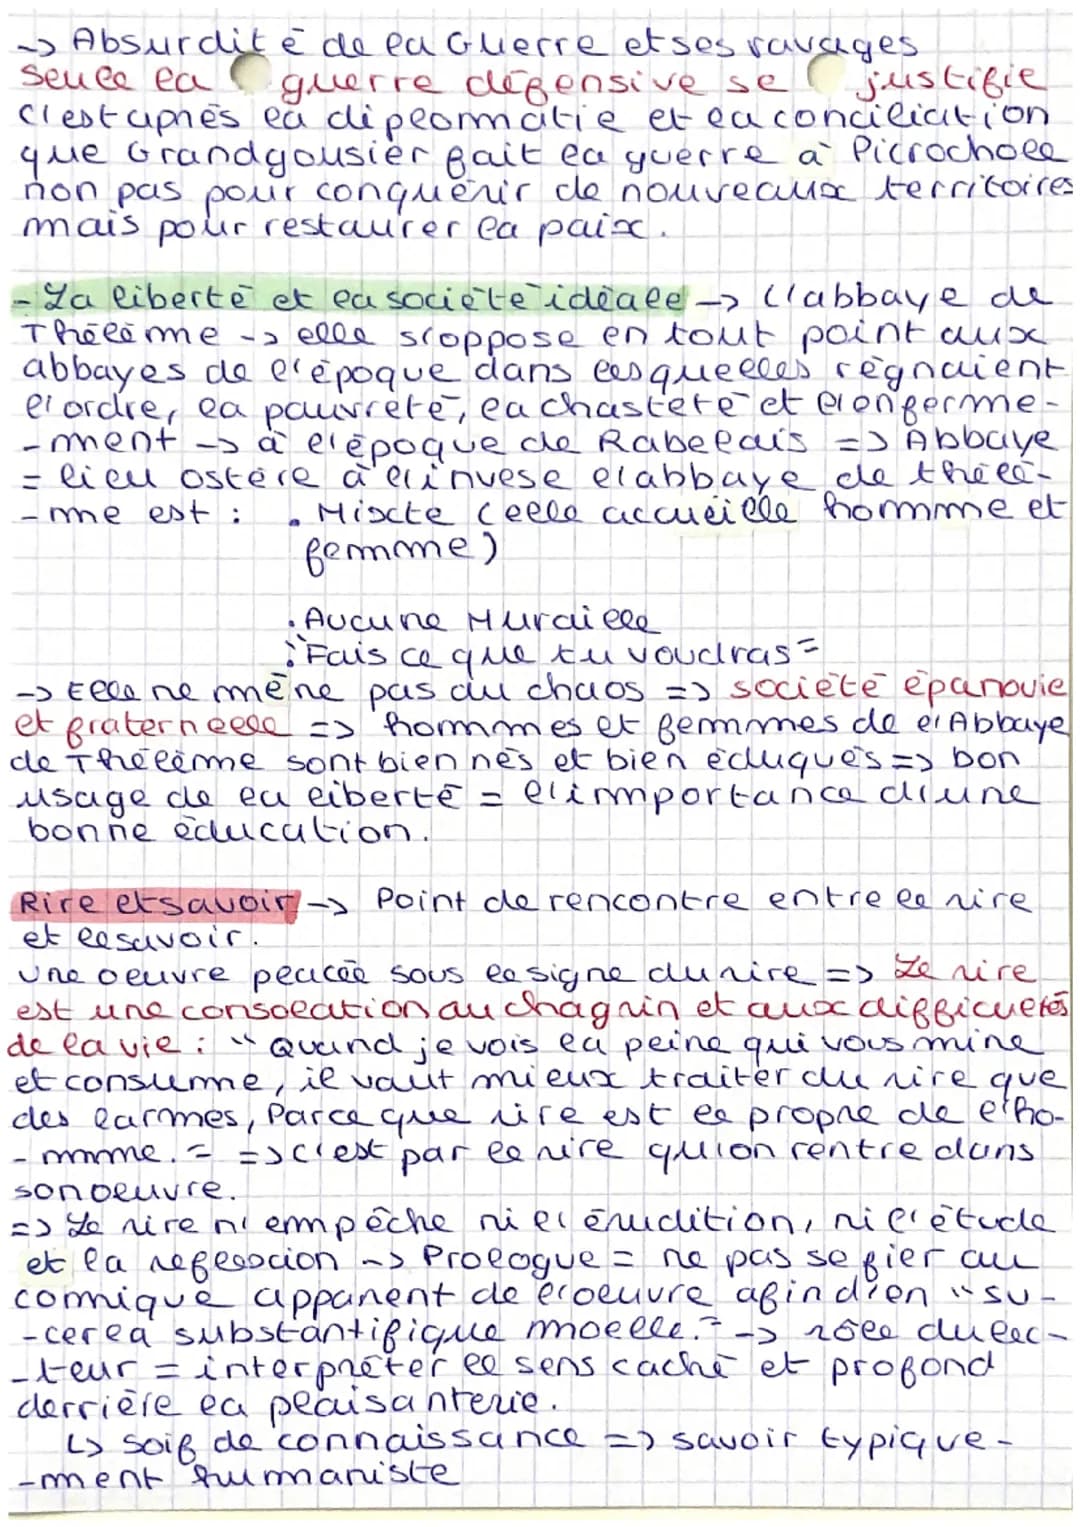 -> Absurdité de la Guerre et ses ravages
Seule la guerre défensive se justifie
c'est après la diplommatie et la conciliation
que Grandgousier fait la guerre à Picrochole
non pas pour conquérir de nouveaux territoires
mais pour restaurer la paix.
- La liberté et la société idéale -> L'abbaye de
Thélème -> elle s'oppose en tout point aux
abbayes de l'époque dans lesquelles régnaient
l'ordre, la pauvreté, la chasteté et l'enferme-
-ment -> à l'époque de Rabelais => Abbaye
= lieu ostère à l'invese l'abbaye de thélè-
-me est : . Mixte (elle accueille homme et
femme)
. Aucune Muraille
. "Fais ce que tu voudras"
-> Elle ne mène pas au chaos => société épanouie
et fraternelle => hommes et femmes de l'Abbaye
de Thélème sont bien nés et bien éduqués => bon
usage de la liberté = l'importance d'une
bonne éducation.
Rire et savoir -> Point de rencontre entre le rire
et le savoir.
Une oeuvre placée sous le signe du rire => Le rire
est une consolation au chagrin et aux difficultés
de la vie : " Quand je vois la peine qui vous mine
et consumme, il vaut mieux traiter du rire que
des larmes, Parce que rire est le propre de l'ho-
-mme. " => c'est par le rire qu'on rentre dans
son oeuvre.
=> Le rire n'empêche ni l'érudition, ni l'étude
et la reflexcion -> Prologue = ne pas se fier au
comique apparent de l'oeuvre afin d'en "su-
-cer la substantifique moelle." -> rôle du lec-
-teur = interpréter le sens caché et profond
derrière la plaisanterie.
↳ soif de connaissance => savoir typique-
-ment humaniste